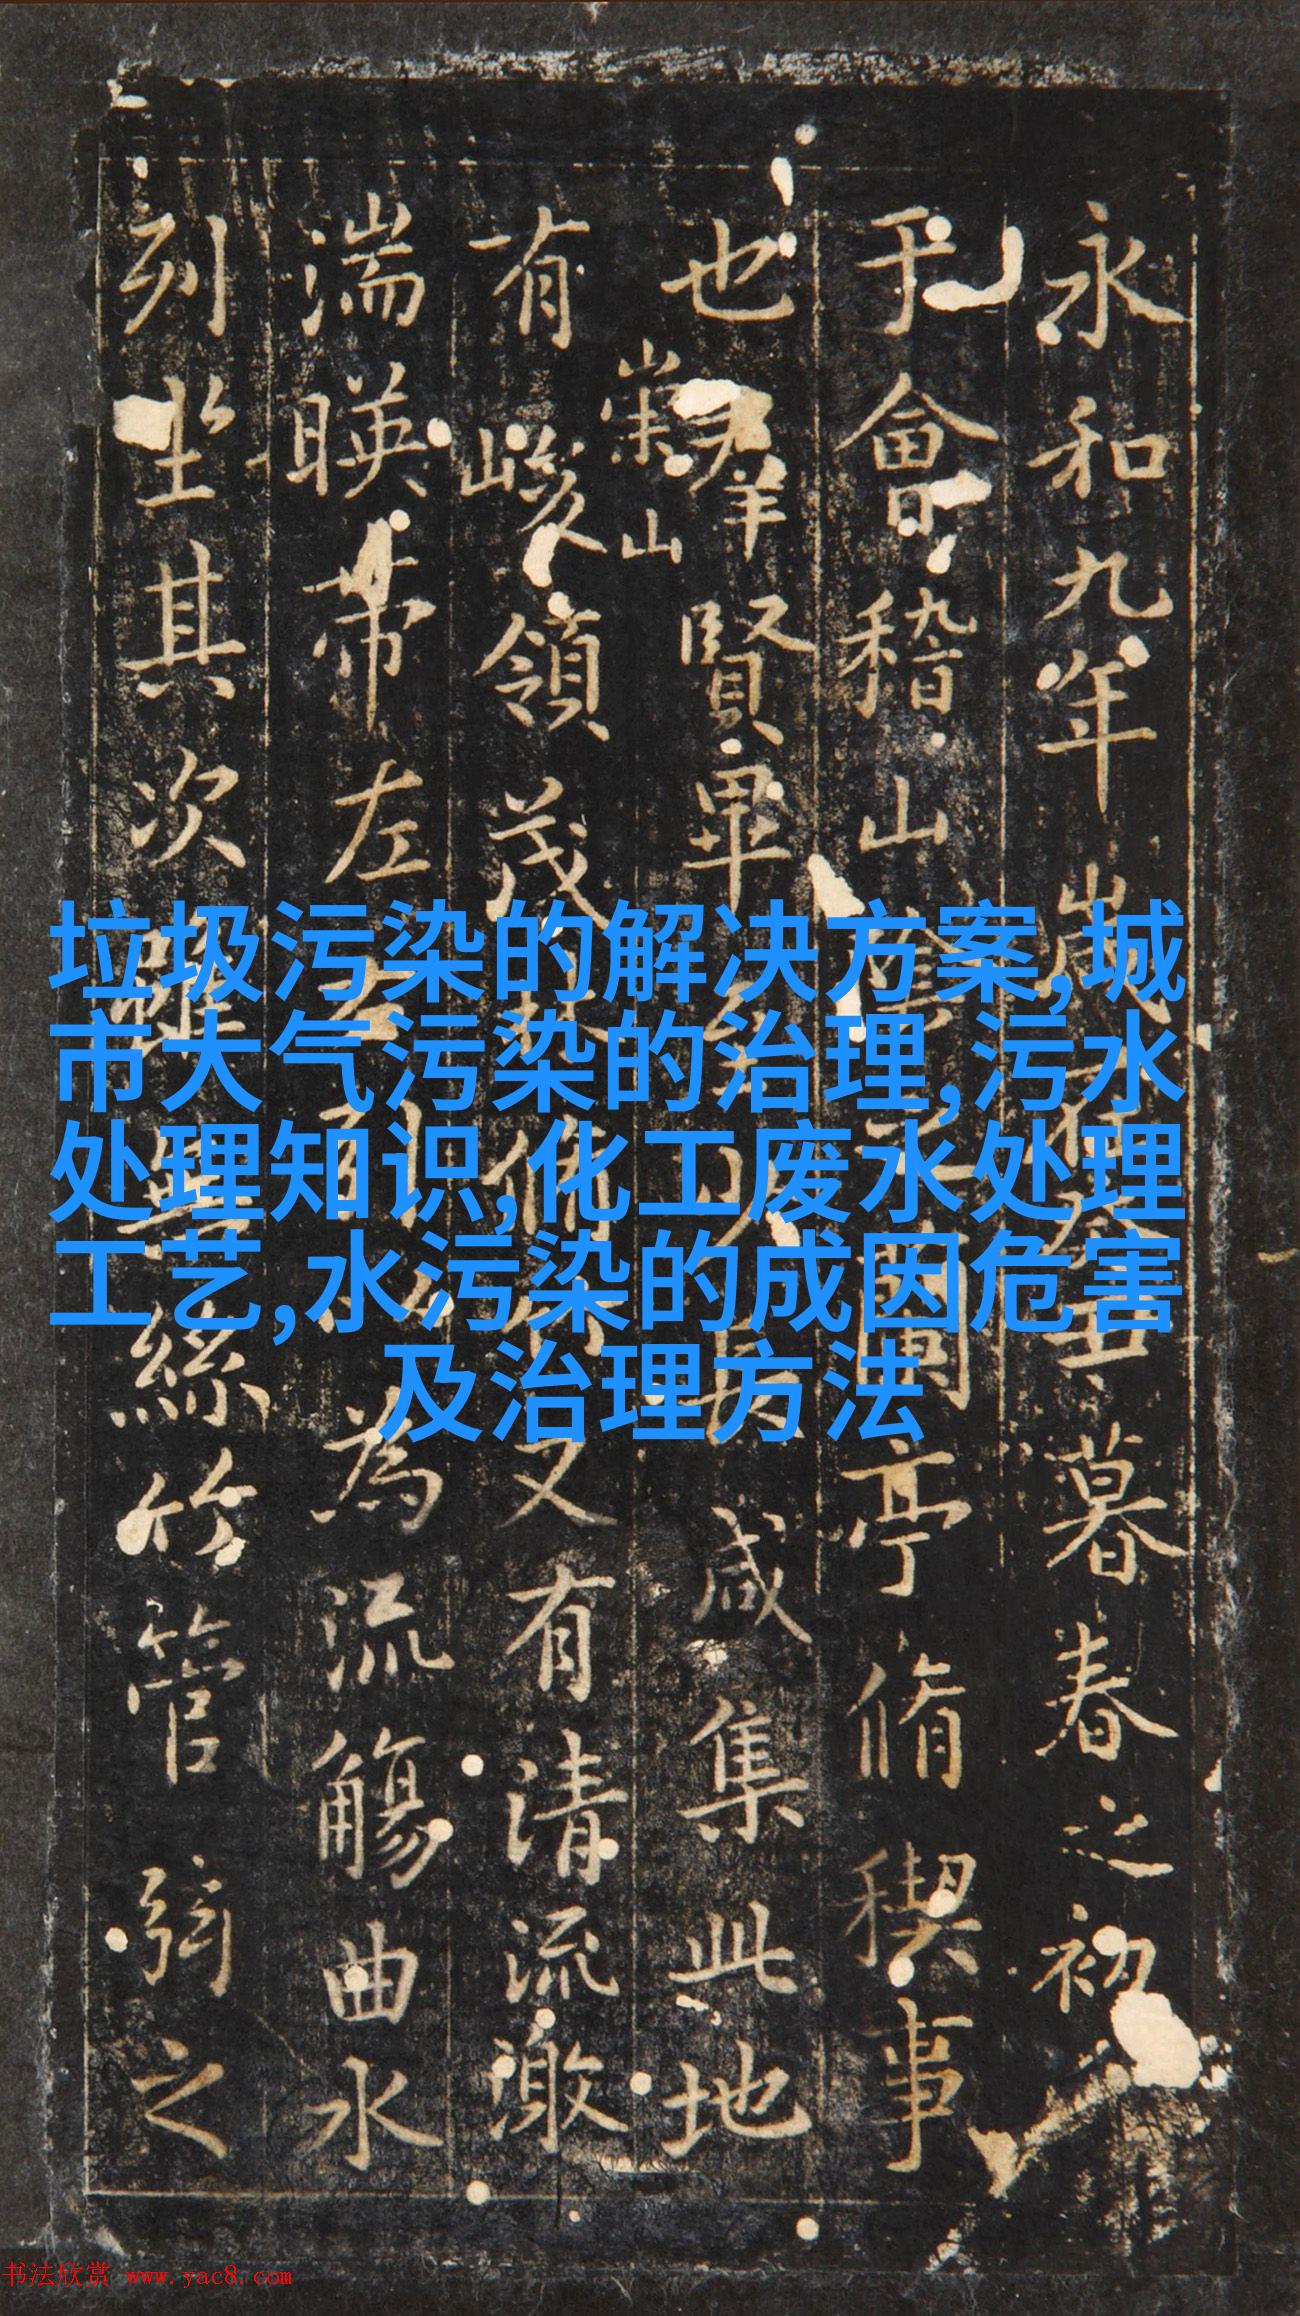 永和九年歲在癸丑暮春之初
于會稽山陰之蘭亭脩稧事
也羣賢畢至少長咸集此地
崇山
有峻領茂林脩竹又有清流激
湍暎帶左右引以為流觴曲水
列坐其次雖無絲竹管弦之
垃圾污染的解决方案,城
市大气污染的治理,污水
处理知识,化工废水处理
工艺,水污染的成因危害
及治理方法
书法欣赏 www.yac8.com